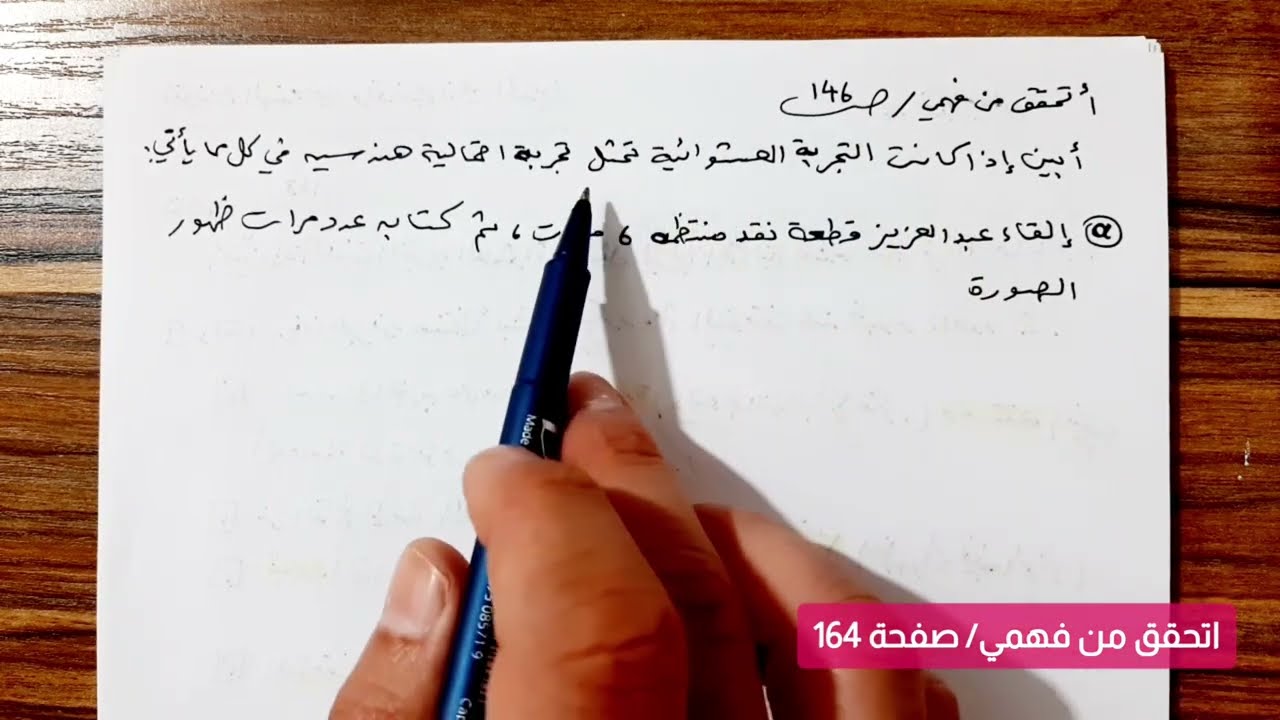 أتحقق من فهمي / صـ 146
أبين إذا كانت التجربة العشوائية تمثل تجربة احتمالية هندسية في كل مما يأتي:
a إلقاء عبد العزيز قطعة نقد منتظمه 6 ، ثم كتابه عدد مرات ظهور
الصورة
اتحقق من فهمي/ صفحة 164